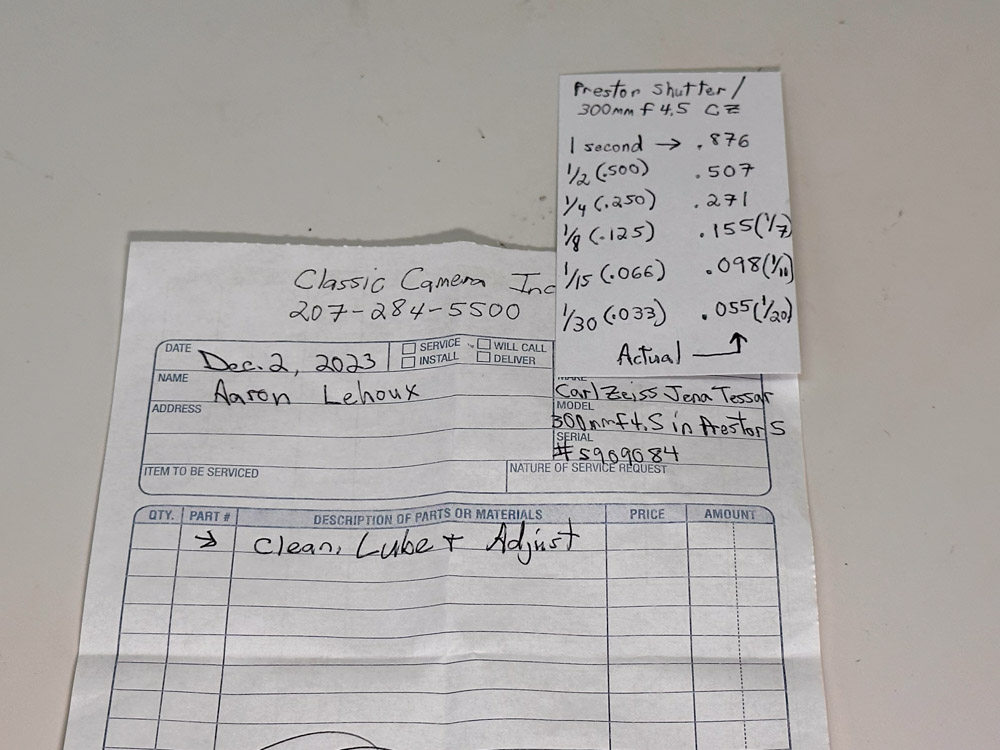 Prestor Shutter/
300mm f 4,5 CZ
1 second → .876
1/2 (.500) .507
1/4 (.250) .271
1/8 (.125) .155 (1/7)
1/15 (.066) .098 (1/10)
1/30 (.033) .055 (1/20)
Actual
Classic Camera Inc
207-284-5500
DATE Dec. 2, 2023
SERVICE WILL CALL
INSTALL DELIVER
NAME Aaron Lehoux
ADDRESS
Carl Zeiss Jena Tessar
MODEL
300mm f 4,5 in Prestor S
SERIAL
#5909084
ITEM TO BE SERVICED NATURE OF SERVICE REQUEST
QTY. PART # DESCRIPTION OF PARTS OR MATERIALS PRICE AMOUNT
→ Clean, Lube + Adjust